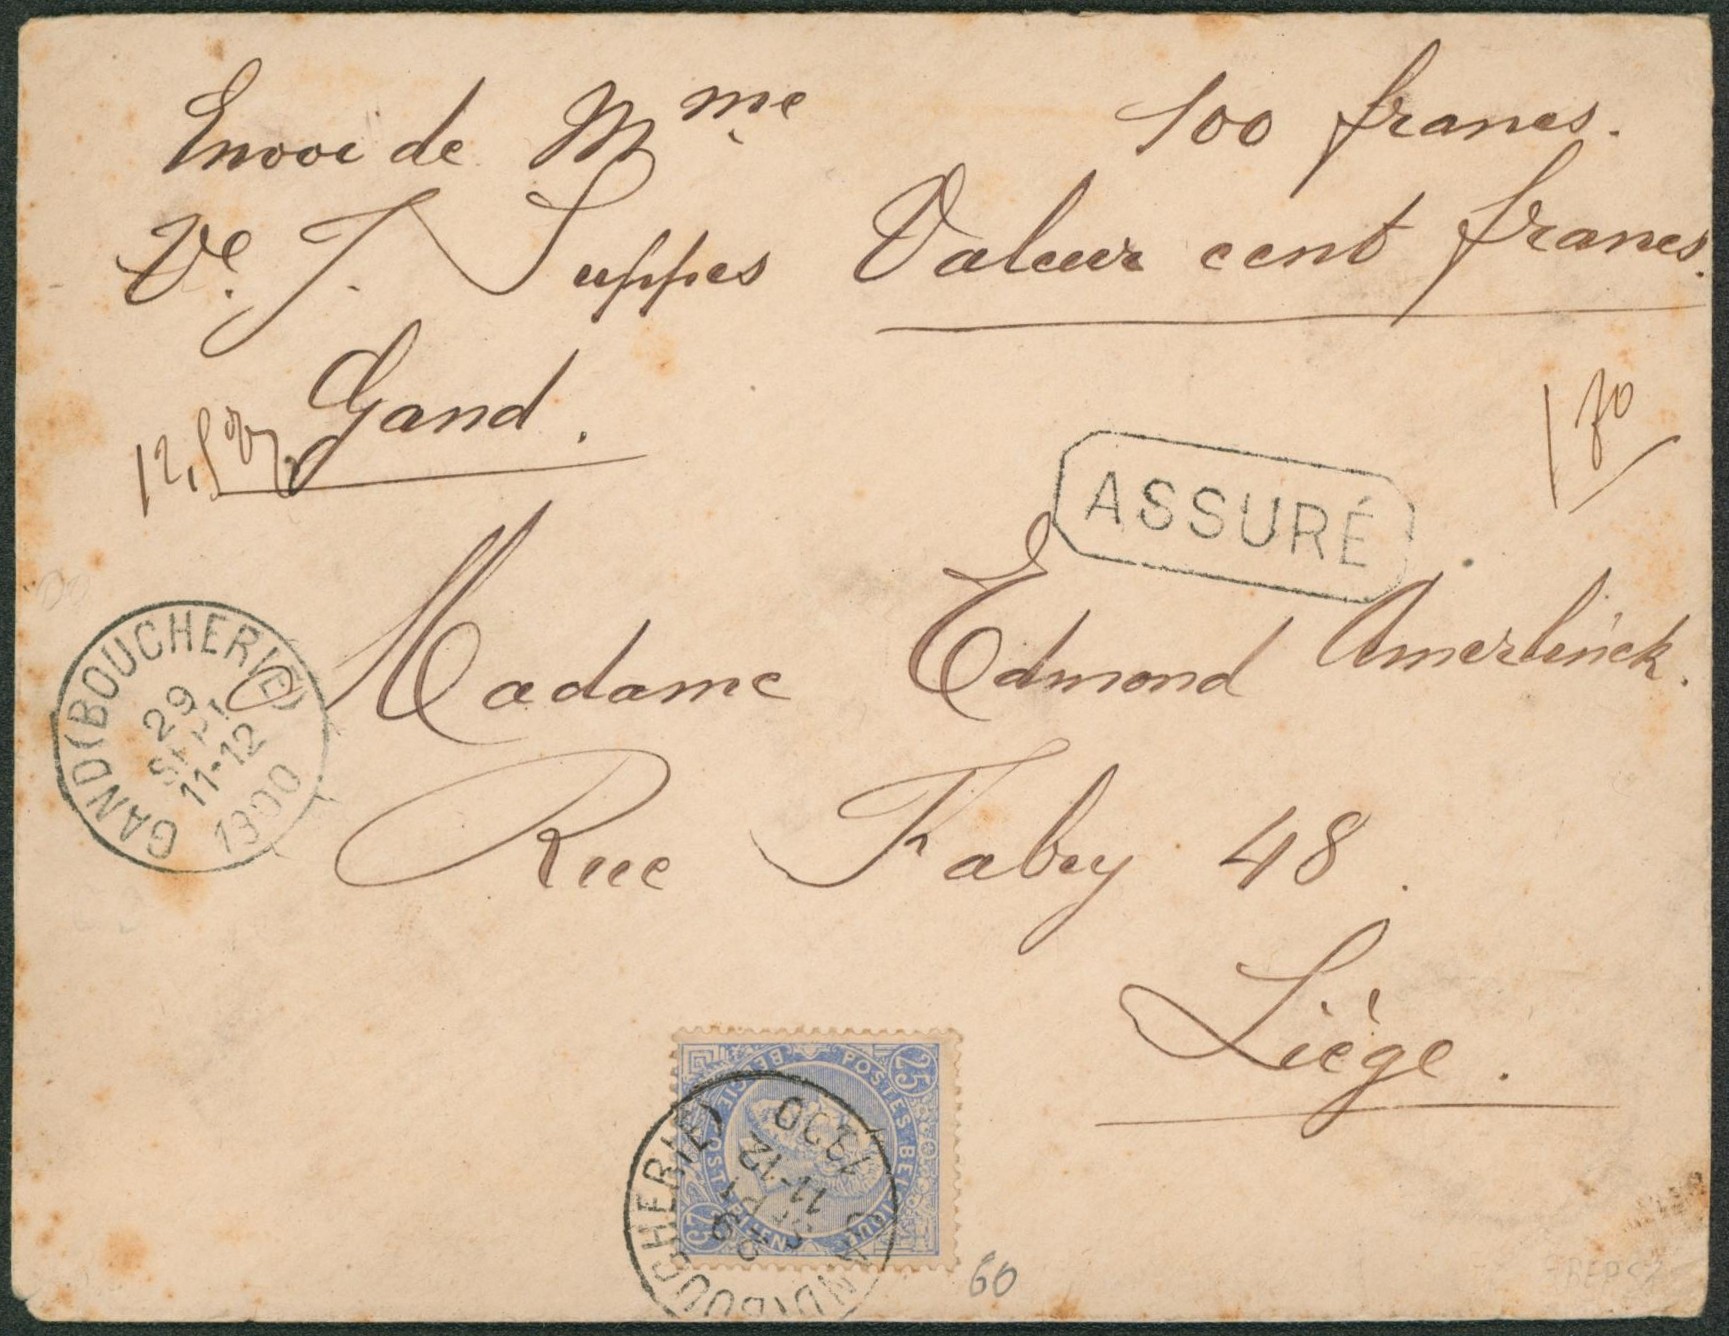 Envoi de Mme
100 francs.
Ve. J. Suppes
Valeur cent francs.
Gand.
ASSURÉ
Madame Edmond Amerlinck.
Rue Fabry 48.
Liège.
GAND (BOUCHERIE)
29
SEPT
11-12
1900
25
POSTES BELGIQUE
BELGIE
25
(BOUCHERIE)
29
SEPT
11-12
1900
60